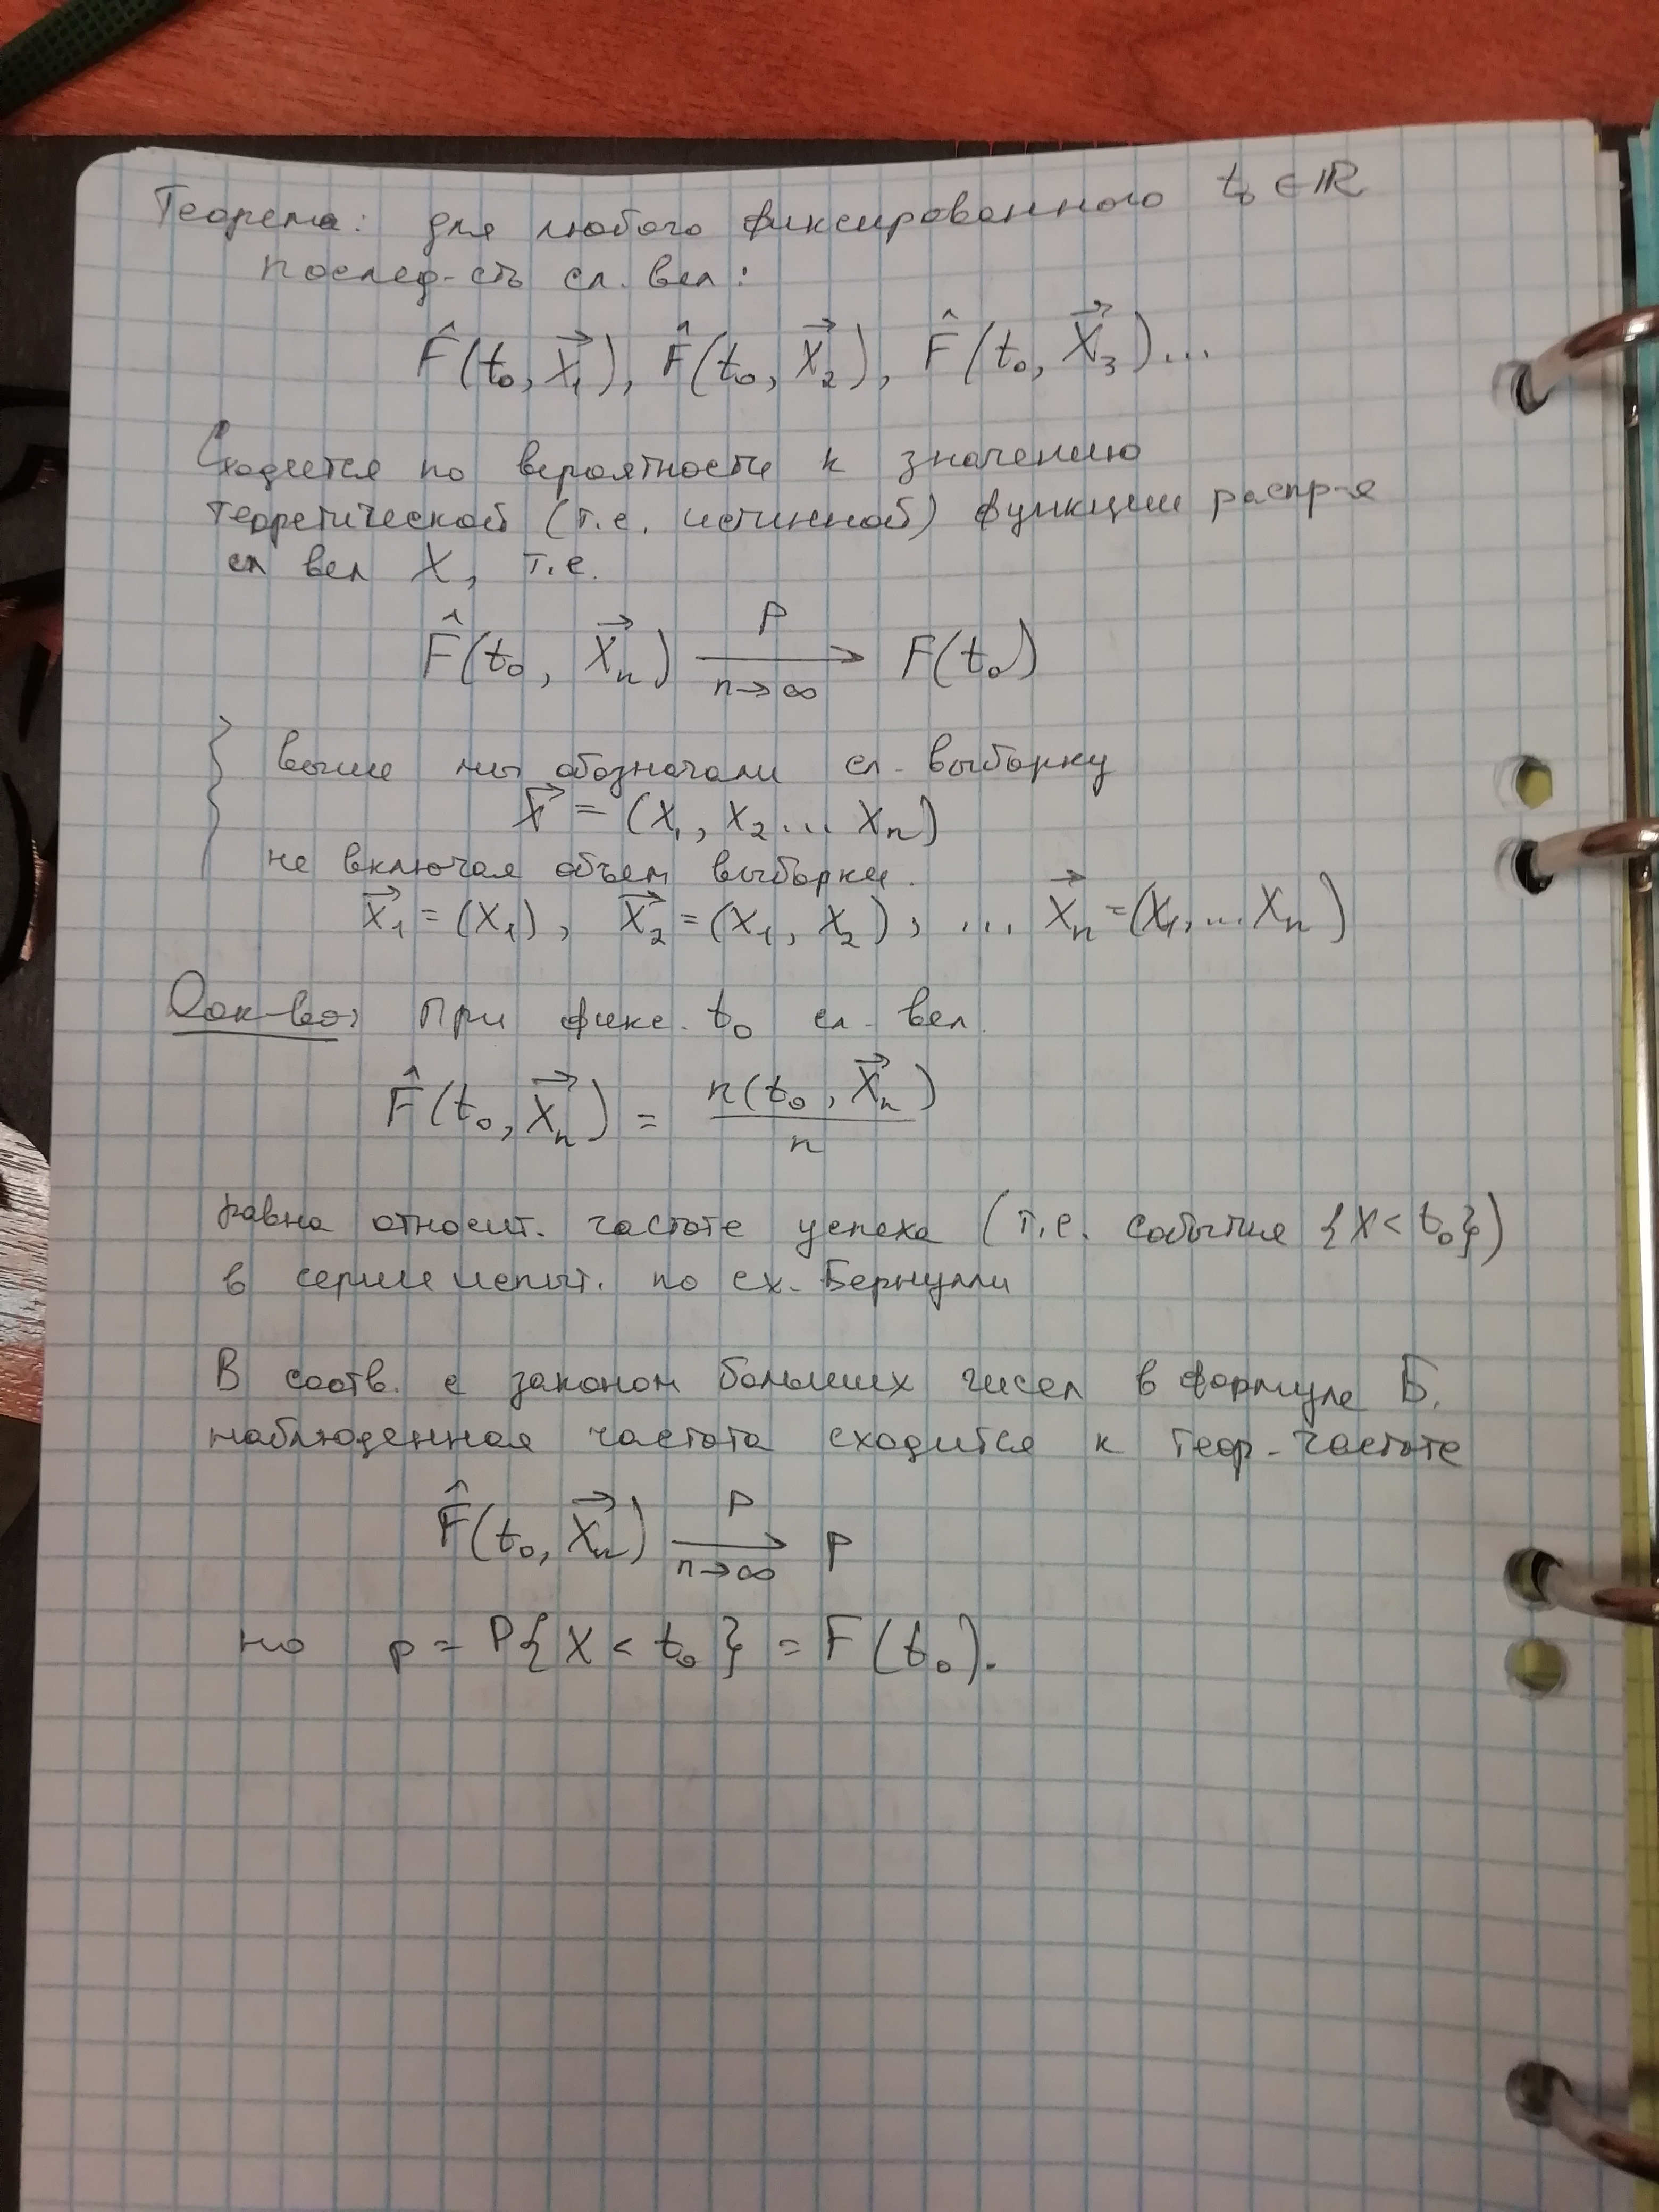 Теорема: для любого фиксированного t₀ ∈ ℝ
послед-сть сл. вел:
F̂(t₀, X⃗₁), F̂(t₀, X⃗₂), F̂(t₀, X⃗₃)...
Сходится по вероятности к значению
теоретической (т.е. истинной) функции распр-я
сл вел X, т.е.
F̂(t₀, X⃗ₙ) —P→ F(t₀)
n→∞
выше мы обозначали сл. выборку
X⃗ = (X₁, X₂... Xₙ)
не включая объем выборки.
X⃗₁ = (X₁), X⃗₂ = (X₁, X₂), ... X⃗ₙ = (X₁,... Xₙ)
Док-во: При фикс. t₀ сл. вел.
F̂(t₀, X⃗ₙ) = n(t₀, X⃗ₙ) / n
равна относит. частоте успеха (т.е. события {X < t₀})
в серии испыт. по сх. Бернулли
В соотв. с законом больших чисел в формуле Б.
наблюденная частота сходится к теор. частоте
F̂(t₀, X⃗ₙ) —P→ p
n→∞
но p = P{X < t₀} = F(t₀).